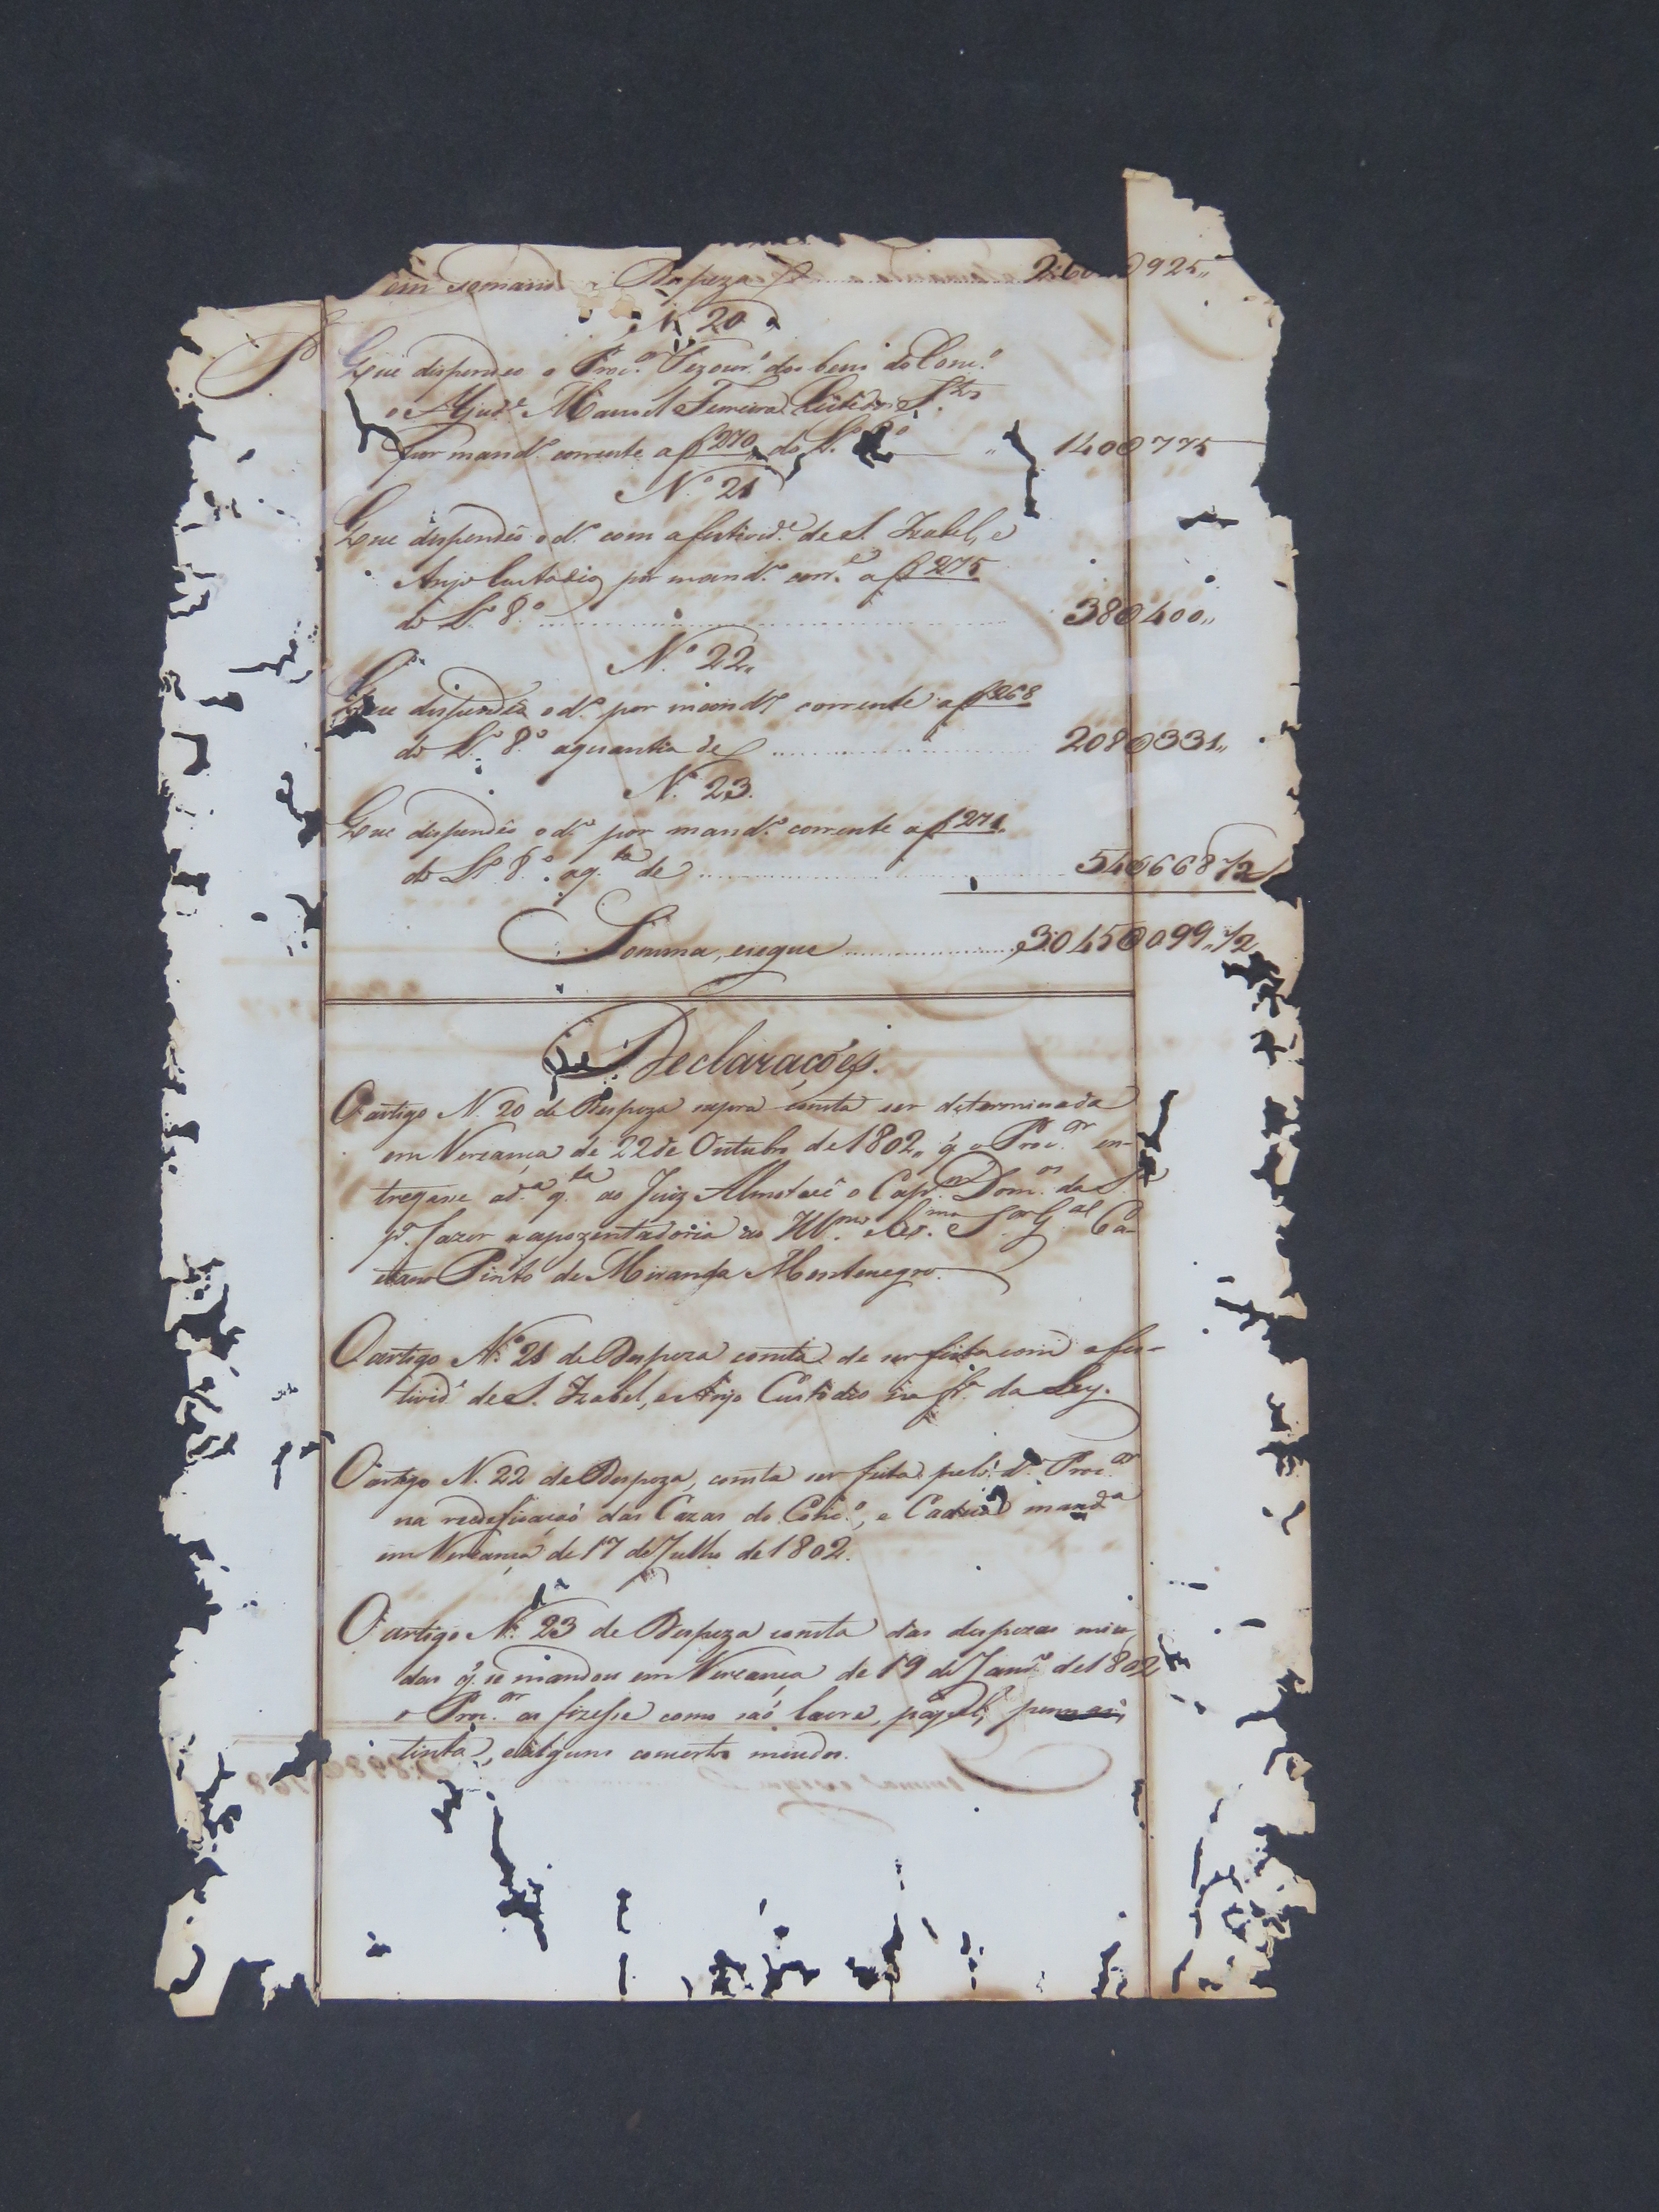 Despeza 2:60 $925,,
N. 20
Que dispendeo o Proc.or Tezour.o dos bens do Conc.o
o Ajud.e Manoel Ferreira
por mand.o corrente a f 270 do L.o 140$775
N.o 21
Que despendeo o d.o com a festivid.e de S. Izabel, e
Anjo Custodio por mand.o corr.e a f 275
do L.o 8.o 38$400,,
N.o 22,,
Que dispendeo o d.o por mand.o corrente a f 268
do L.o 8.o a quantia de 208$331,,
N.o 23.
Que despendeo o d.o por mand.o corrente a f 271
do L.o 8.o a q.ta de 54$668 1/2
Somma, e segue 3:045$099,,1/2
Declarações.
O artigo N. 20 de Despeza supra consta ser determinada
em Vereança de 22 de Outubro de 1802,, q o Proc.or en-
tregase a d.a q.ta ao Juiz Almotacê o Cap.m Dom.os da S.
p.a fazer a apozentadoria ao Ill.mo e Ex.mo S.or G.al Ca-
etano Pinto de Miranda Montenegro.
O artigo N.o 21 de Despeza consta de ser feita com a fes-
tivid.e de S. Izabel, e Anjo Custodio na f.a da Ley.
O artigo N. 22 de Despeza, consta ser feita pelo d.o Proc.or
na reedificação das Cazas do Conc.o, e Cadeia mand.a
em Vereança de 17 de Julho de 1802.
O artigo N.o 23 de Despeza consta das despezas miu
das q. se mandou em Vereança de 19 de Janr.o de 1802
o Proc.or as fizesse como são lacre, papel, pennas,
tinta, e alguns concertos miudos.